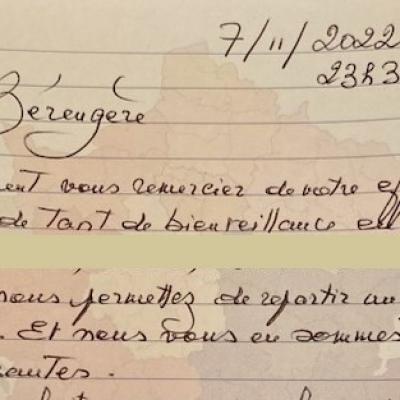 7/11/2022
23h3
Bérengère
ent vous remercier de votre ef
de tant de bienveillance et
nous permettez de repartir au
. Et nous vous en sommes
antes.